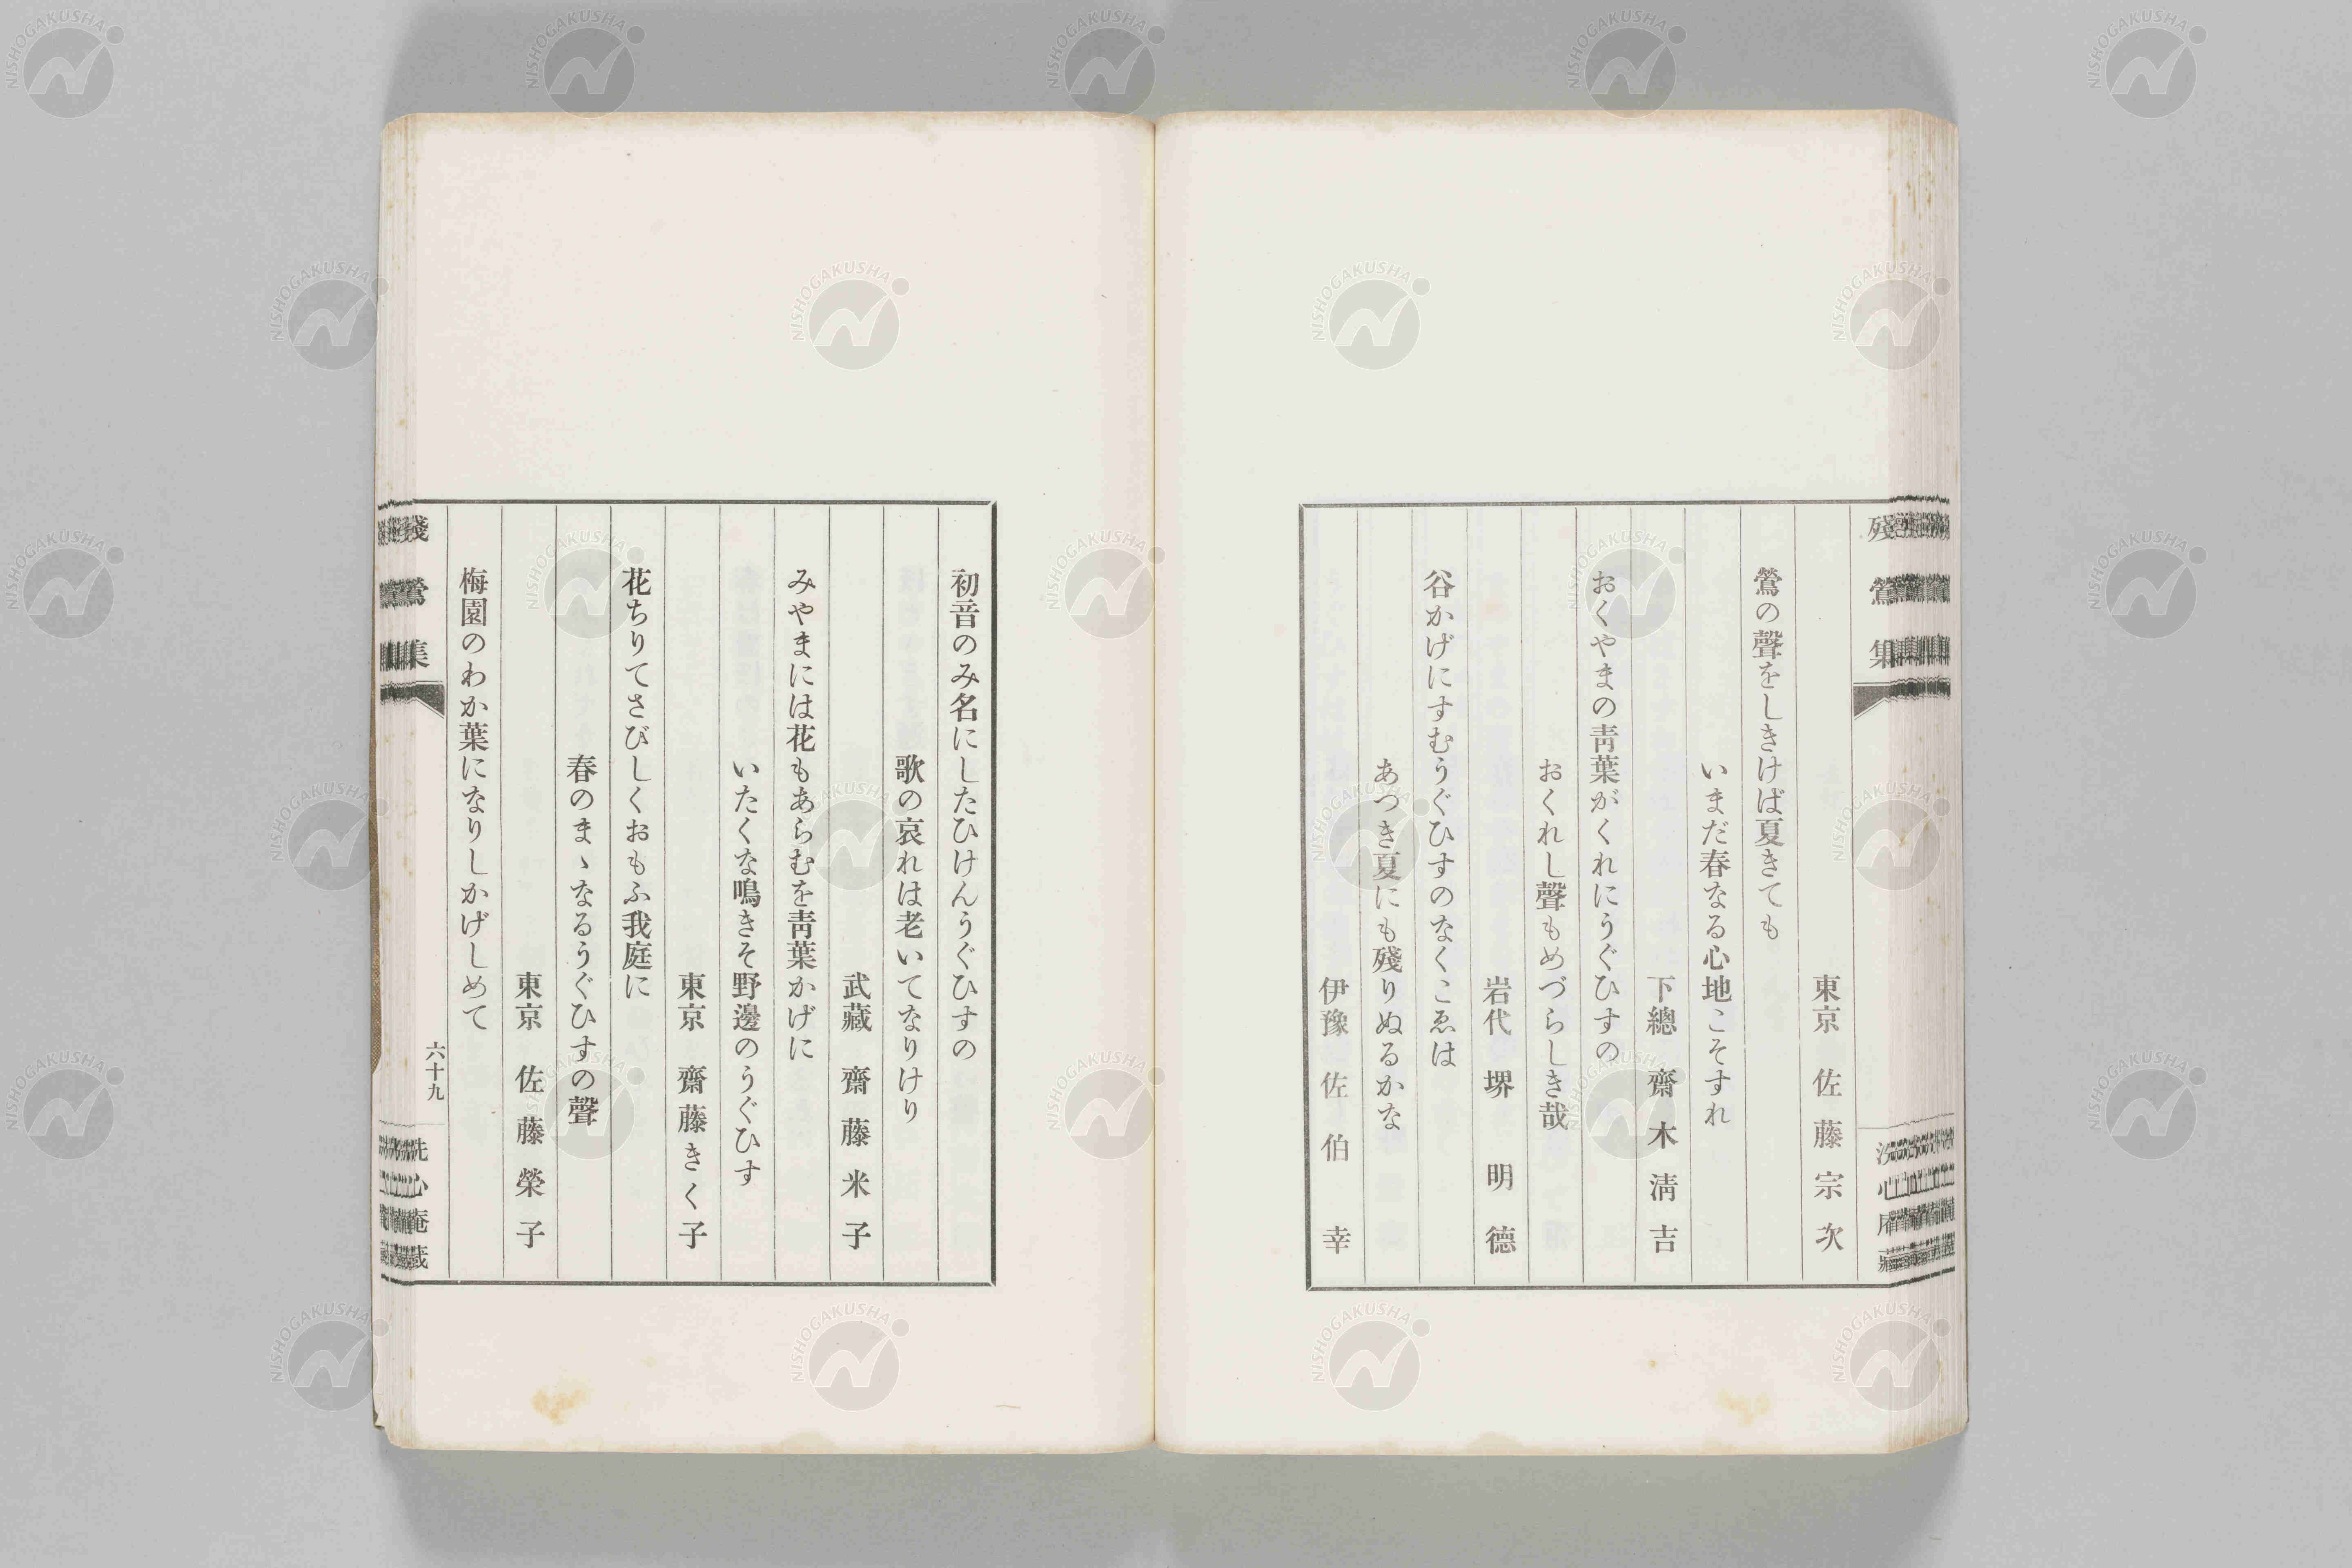 殘鶯集
東京 佐藤宗次
鶯の聲をしきけば夏きても
いまだ春なる心地こそすれ
下總 齋木淸吉
おくやまの靑葉がくれにうぐひすの
おくれし聲もめづらしき哉
岩代 堺明德
谷かげにすむうぐひすのなくこゑは
あつき夏にも殘りぬるかな
伊豫 佐伯幸
初音のみ名にしたひけんうぐひすの
歌の哀れは老いてなりけり
武藏 齋藤米子
みやまには花もあらむを靑葉かげに
いたくな鳴きそ野邊のうぐひす
東京 齋藤きく子
花ちりてさびしくおもふ我庭に
春のまゝなるうぐひすの聲
東京 佐藤榮子
梅園のわか葉になりしかげしめて
殘鶯集
六十九
洗心庵藏
NISHOGAKUSHA